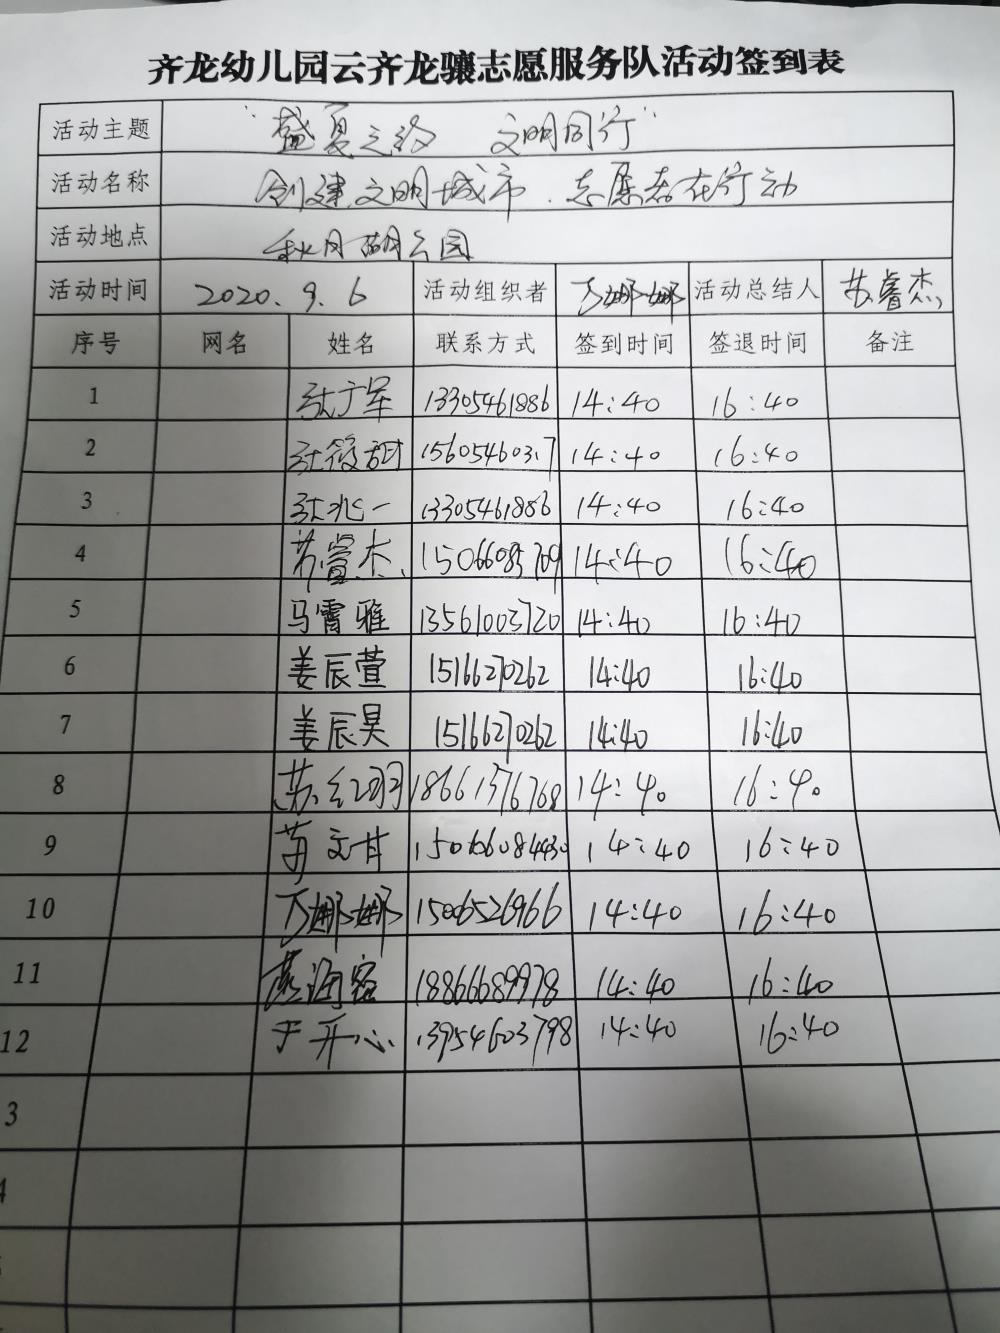 齐龙幼儿园云齐龙骧志愿服务队活动签到表
活动主题 "盛夏之约 文明同行"
活动名称 创建文明城市.志愿者在行动
活动地点 秋月湖公园
活动时间 2020.9.6 活动组织者 万娜娜 活动总结人 苏睿杰
序号 网名 姓名 联系方式 签到时间 签退时间 备注
1 张广军 13305461886 14:40 16:40
2 张筱甜 15605460317 14:40 16:40
3 张兆一 13305461886 14:40 16:40
4 苏睿杰 15066085709 14:40 16:40
5 马霄雅 13561003720 14:40 16:40
6 姜辰萱 15166270262 14:40 16:40
7 姜辰昊 15166270262 14:40 16:40
8 苏红羽 18661376768 14:40 16:40
9 苏文甘 15066084430 14:40 16:40
10 万娜娜 15065226966 14:40 16:40
11 燕海容 18866689978 14:40 16:40
12 于开心 13954603798 14:40 16:40
3
4